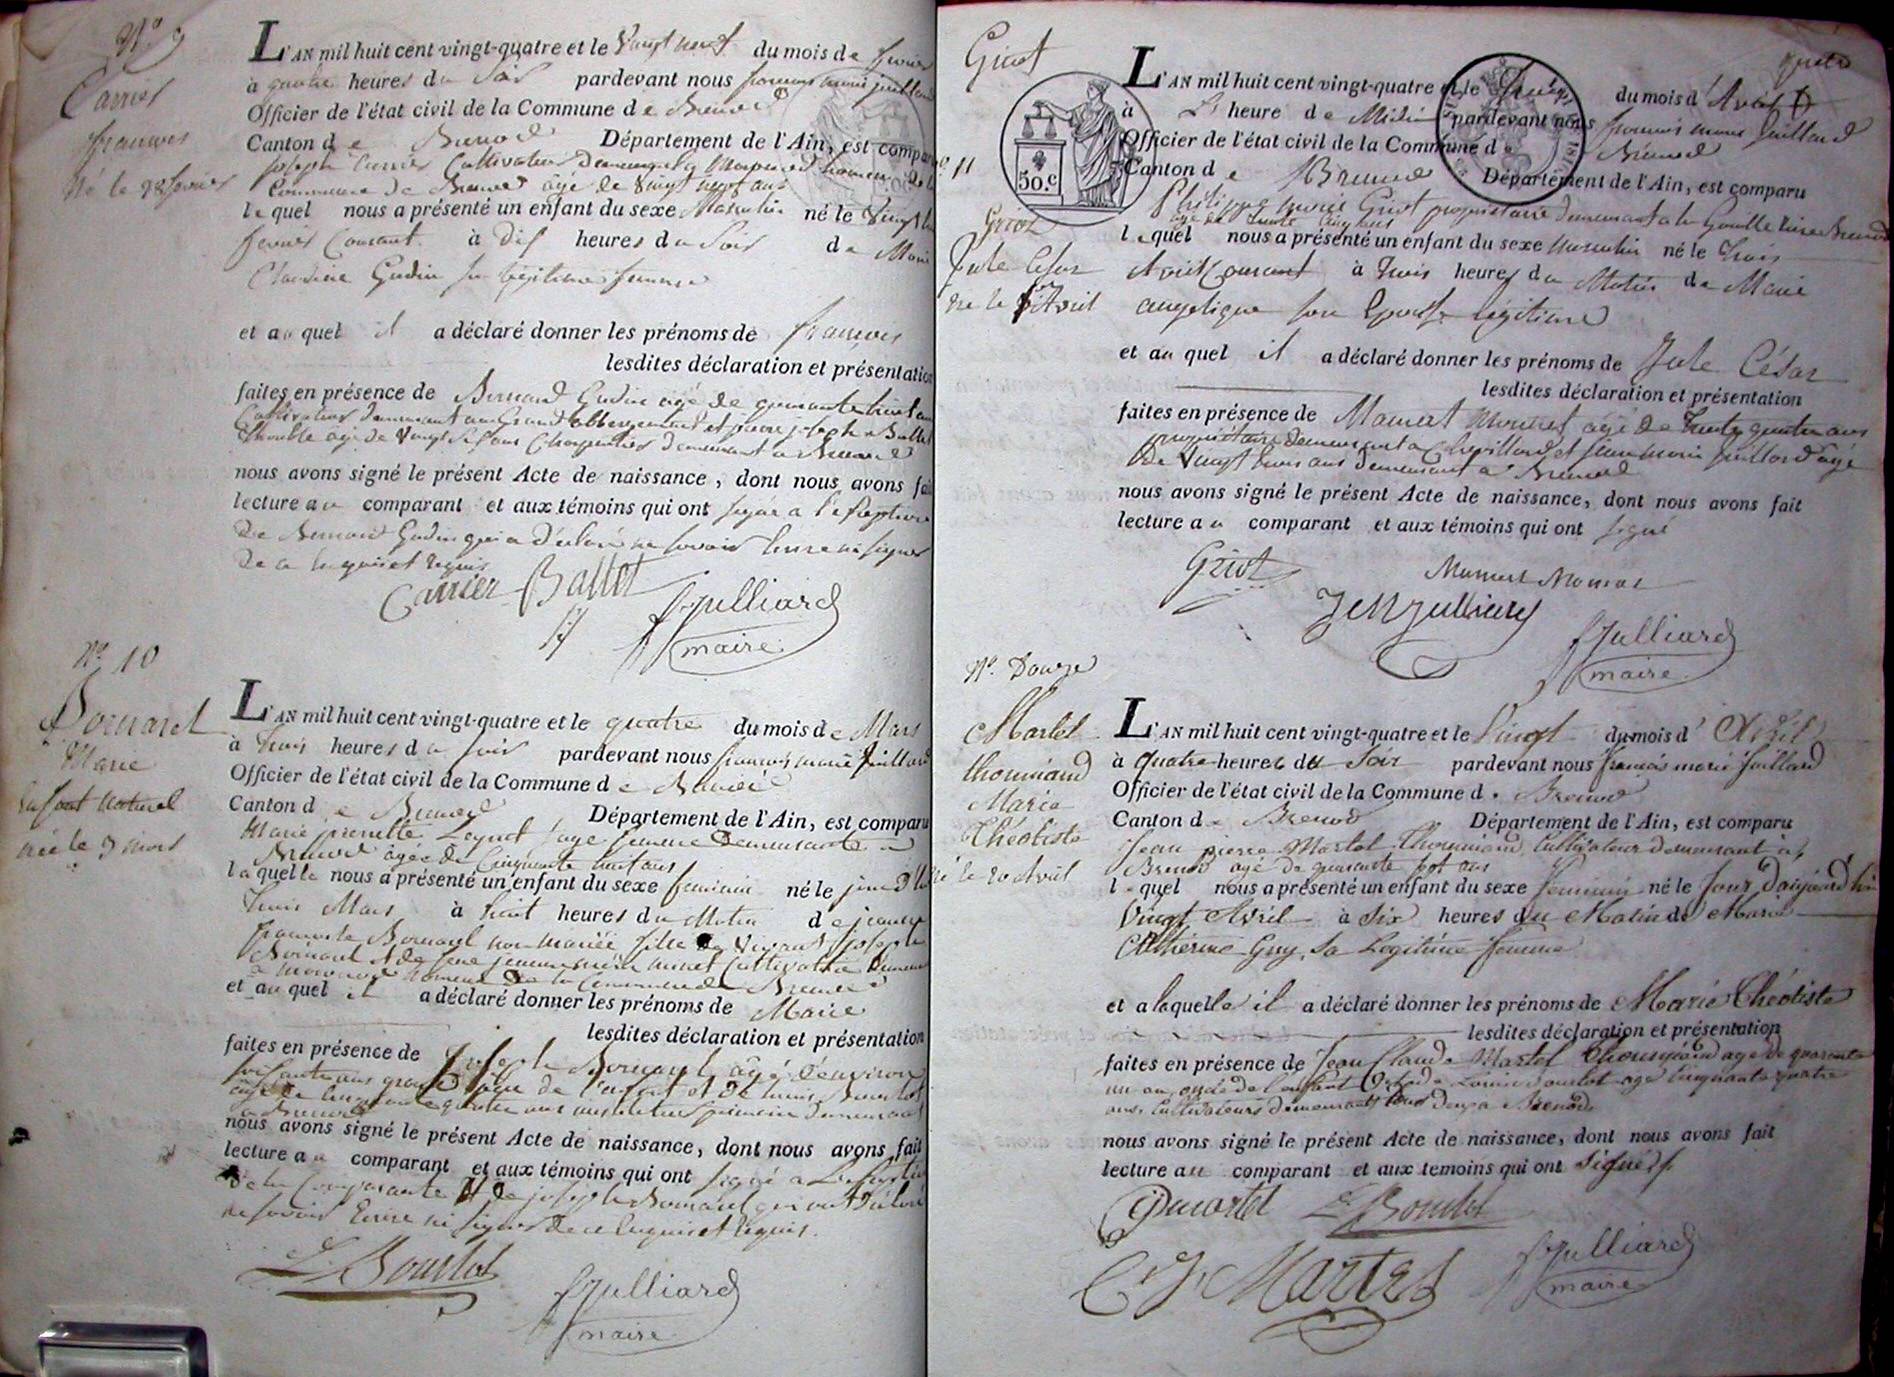 N.° 9
Carrier
françois
Né le 28 fevrier
L'AN mil huit cent vingt-quatre et le Vingt neuf du mois de fevrier
à quatre heures du Soir pardevant nous françois marie juillard
Officier de l'état civil de la Commune de Brenod
Canton de Brenod Département de l'Ain, est comparu
joseph Carrier Cultivateur Demeurant a hameau de la
Commune de Brenod âgé de vingt neuf ans
lequel nous a présenté un enfant du sexe Masculin né le Vingt huit
fevrier Courant à Dix heures du Soir de Marie
Claudine Gudin sa legitime femme
et auquel il a déclaré donner les prénoms de françois
lesdites déclaration et présentation
faites en présence de Bernard Gudin agé de quarante huit ans
Cultivateur demeurant au Grand abbergement et pierre joseph Ballet
âgé de Vingt Six ans Charpentier demeurant a Brenod
nous avons signé le présent Acte de naissance, dont nous avons fait
lecture au comparant et aux témoins qui ont signé a l'exeption
De Bernard Gudin qui a Déclaré ne savoir Ecrire ni signer
De ce enquis et requis
Carrier Ballet
fJulliard
maire
N.° 10
Bornard
Marie
Enfant naturel
née le 3 mars
L'AN mil huit cent vingt-quatre et le quatre du mois de Mars
à trois heures du soir pardevant nous françois marie juillard
Officier de l'état civil de la Commune de Brenod
Canton de Brenod Département de l'Ain, est comparu
Marie pierrette sage femme Demeurante a
Brenod âgée de Cinquante huit ans
laquelle nous a présenté un enfant du sexe feminin né le jour d'hier
trois Mars à huit heures du Matin de jeanne
françoise Bornard non mariée fille de joseph
Bornard et de Cultivateur
hameau de la Commune de Brenod
et auquel il a déclaré donner les prénoms de Marie
lesdites déclaration et présentation
faites en présence de joseph Bornard âgé d'environ
soixante ans grand de l'enfant et de Louis Bourlot
âgé de Cinquante quatre ans instituteur primaire demeurant
a Brenod
nous avons signé le présent Acte de naissance, dont nous avons fait
lecture au comparant et aux témoins qui ont signé a L'exeption
de la Comparante et de joseph Bornard qui ont Déclaré
ne savoir Ecrire ni signer de ce enquis et requis.
L. Bourlot
fJulliard
maire
quatre
Griot
50.c
N° 11
Griot
Jule César
né le 3 Avril
L'AN mil huit cent vingt-quatre et le trois du mois d'Avril
à L' heure de Midi pardevant nous françois marie Juillard
Officier de l'état civil de la Commune de Brenod
Canton de Brenod Département de l'Ain, est comparu
Philippe marie Griot propriétaire demeurant a la Gouille Brenod
âgé de trente Cinq ans
lequel nous a présenté un enfant du sexe masculin né le trois
Avril Courant à trois heures du Matin de Marie
angelique son Epouse légitime
et auquel il a déclaré donner les prénoms de Jule César
lesdites déclaration et présentation
faites en présence de Mamert âgé de trente quatre ans
propriétaire demeurant a Chevillard et jean marie juillard âgé
de Vingt trois ans demeurant a Brenod
nous avons signé le présent Acte de naissance, dont nous avons fait
lecture au comparant et aux témoins qui ont signé
Griot Mamert
JeM Julliard
fJulliard
maire
N.° Douze
Martel
thomiand
Marie
Théotiste
né le 20 Avril
L'AN mil huit cent vingt-quatre et le Vingt du mois d'Avril
à quatre heures du Soir pardevant nous françois marie juillard
Officier de l'état civil de la Commune de Brenod
Canton de Brenod Département de l'Ain, est comparu
Jean pierre Martel Thomiand, Cultivateur demeurant a
Brenod agé de quarante sept ans
lequel nous a présenté un enfant du sexe féminin né le jour d'aujourd'hui
Vingt Avril à Six heures du Matin de Marie
Cathérine Guy, Sa Legitime femme
et a laquelle il a déclaré donner les prénoms de Marie Théotiste
lesdites déclaration et présentation
faites en présence de Jean Claude Martel Thomiand agé de quarante
un an oncle de l'enfant Et de Louis Bourlot agé Cinquante quatre
ans Cultivateurs demeurant tous deux a Brenod
nous avons signé le présent Acte de naissance, dont nous avons fait
lecture au comparant et aux temoins qui ont signés
martel L. Bourlot
C J Martel
fJulliard
maire